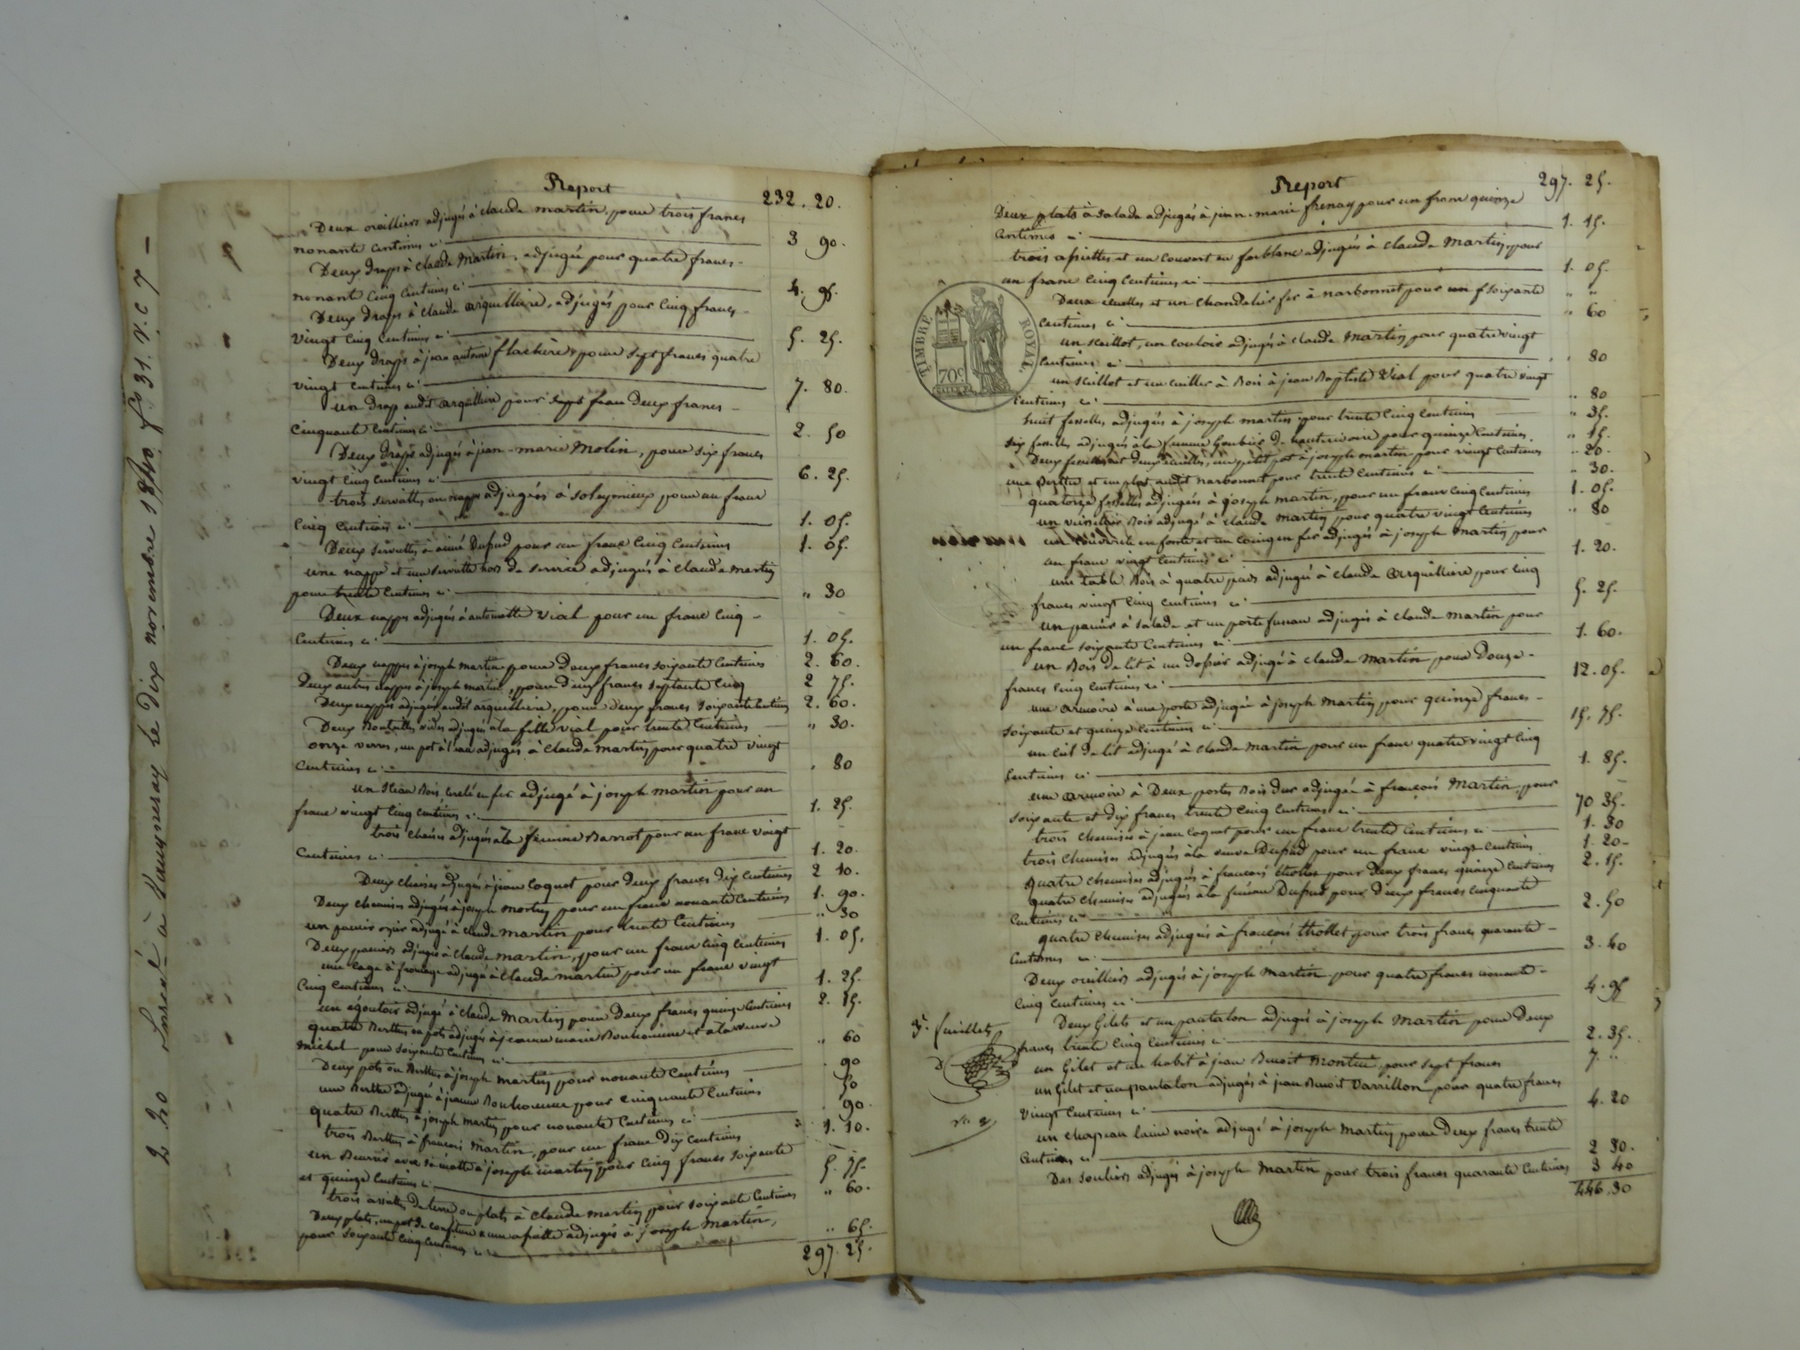 Report 232. 20.
Deux oreilliers adjugés à claude martin, pour trois francs
nonante centimes ci 3 90.
Deux draps à claude Martin, adjugés pour quatre francs
nonante cinq centimes ci 4. 95.
Deux draps à claude arquilliere, adjugés pour cinq francs
vingt cinq centimes ci 5. 25.
Deux draps à jean antoine flachère pour sept francs quatre
vingt centimes ci 7. 80.
un drap audit arquilliere pour deux francs
cinquante centimes ci 2. 50
Deux draps adjugés à jean-marie Molin, pour six francs
vingt cinq centimes ci 6. 25.
trois serviettes ou nappe adjugées à soleymieux pour un franc
cinq centimes ci 1. 05.
Deux serviettes à aimé Dufud pour un franc cinq centimes 1. 05.
une nappe et une serviette hors de service adjugés à claude martin
pour trente centimes ci " 30
Deux nappes adjugées à antoinette vial pour un franc cinq
centimes ci 1. 05.
Deux nappes à joseph martin pour Deux francs soixante centimes 2. 60.
Deux autres nappes à joseph martin, pour deux francs septante cinq 2 75.
Deux nappes adjugées audit arquilliere, pour deux francs soixante centimes 2. 60.
Deux Bouteilles vides adjugées à la fille vial pour trente centimes " 30.
onze verres, un pot à l'eau adjugés à claude martin pour quatre vingt
centimes ci . 80
un seau Bois cerclé en fer adjugé à joseph martin pour un
franc vingt cinq centimes ci 1. 25.
trois chaises adjugées à la femme Barrot pour un franc vingt
centimes ci 1. 20.
Deux chaises adjugées à jean coquet pour deux francs dix centimes 2 10.
Deux chemises adjugées à joseph martin pour un franc nonante centimes 1. 90.
un panier osier adjugé à claude martin pour trente centimes " 30
Deux paniers adjugés à claude martin, pour un franc cinq centimes 1. 05.
une cage à fromage adjugé à claude martin pour un franc vingt
cinq centimes ci 1. 25.
un égoutoir adjugé à claude Martin pour Deux francs quinze centimes 2. 15.
quatre Berthes ou pots adjugés à jeanne marie Bonhomme et à la veuve
michel pour soixante centimes ci " 60
Deux pots ou Berthes à joseph martin pour nonante centimes . 90
une Berthe adjugé à jeanne Bonhomme pour cinquante centimes . 50
quatre Berthes à joseph martin pour nonante centimes ci . 90.
trois Berthes à francois martin, pour un franc dix centimes 1. 10.
un Beurrier avec à joseph martin pour cinq francs soixante
et quinze centimes ci 5. 75.
trois assiettes de terre ou plats à claude martin pour soixante centimes " 60.
Deux plats, un pot de confiture et une assiette adjugés à joseph martin,
pour soixante cinq centimes ci " 65.
297. 25.
2 Ro Insesé à le Dix novembre 1840 fo 31. V. C 7
Report 297. 25.
Deux plats à salade adjugés à jean-marie frenay pour un franc quinze
centimes ci 1. 15.
trois assiettes et un couvert en ferblanc adjugés à claude Martin, pour
un franc cinq centimes ci 1. 05.
Deux écuelles et un chandelier fer à narbonnet pour soixante
centimes ci " 60
un seillot, un couloir adjugés à claude martin pour quatre vingt
centimes ci " 80
un seillot et un cuiller à Bois à jean Baptiste Vial pour quatre vingt
centimes ci " 80
huit fesselles adjugés à joseph martin pour trente cinq centimes " 35.
six fesselles adjugés à la femme de pour quinze centimes. " 15.
Deux un petit pot à joseph martin pour vingt centimes " 20.
une Berthe et un plat audit narbonnet pour trente centimes ci " 30.
quatorze fesselles adjugées à joseph martin, pour un franc cinq centimes 1. 05.
un Bois adjugé à claude Martin pour quatre vingt centimes " 80
un couvercle en fonte et un en fer adjugés à joseph Martin pour
un franc vingt centimes ci 1. 20.
une table Bois à quatre pieds adjugé à claude arquilliere pour cinq
francs vingt cinq centimes ci 5. 25.
un panier à salade et un porte fuseau adjugés à claude martin pour
un franc soixante centimes ci 1. 60.
un Bois de lit à un dossier adjugé à claude Martin pour Douze
francs cinq centimes ci 12. 05.
une armoire à une porte adjugée à joseph Martin pour quinze francs
soixante et quinze centimes ci 15. 75.
un ciel de lit adjugé à claude martin pour un franc quatre vingt cinq
centimes ci 1. 85.
une armoire à Deux portes Bois dur adjugée à francois Martin, pour
soixante et dix francs trente cinq centimes ci 70 35.
trois chemises à jean coquet pour un franc trente centimes ci 1. 30
trois chemises adjugés à la veuve Dufud pour un franc vingt centimes 1. 20
quatre chemises adjugés à francois thollet pour Deux francs quinze centimes 2. 15.
quatre chemises adjugés à la femme Dufud pour deux francs cinquante
centimes ci 2. 50
quatre chemises adjugés à francois thollet pour trois francs quarante
centimes ci 3. 40
Deux oreilliers adjugés à joseph Martin pour quatre francs nonante
cinq centimes ci 4. 95
3e. feuillet
D
Deux Gilets et un pantalon adjugés à joseph Martin pour Deux
francs trente cinq centimes ci 2. 35.
un Gilet et un habit à jean Benoit Montin, pour sept francs 7. "
un Gilet et un pantalon adjugés à jean Benoit Varrillon pour quatre francs
vingt centimes ci 4. 20
un chapeau laine noire adjugé à joseph Martin pour Deux francs trente
centimes ci 2 30.
Des souliers adjugés à joseph Martin pour trois francs quarante centimes 3 40
446. 30
TIMBRE ROYAL.
70c